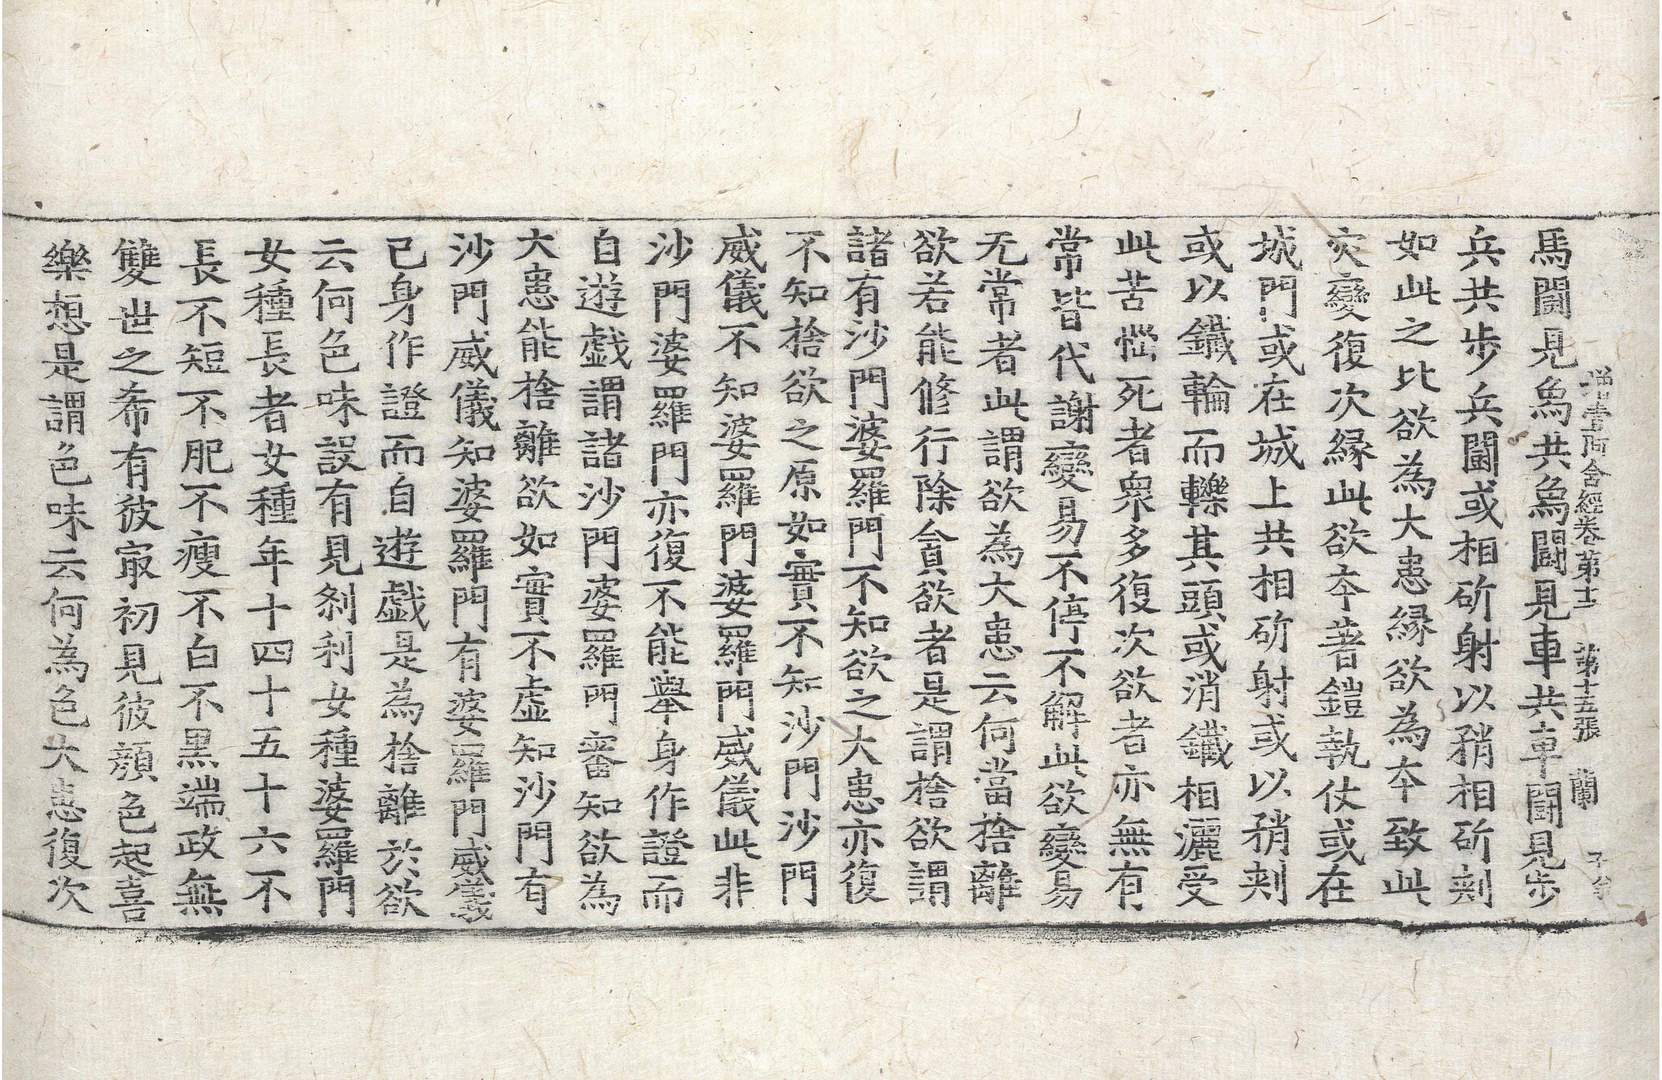 增壹阿含經卷第十二 第十五張 蘭
馬鬪見烏共烏鬪見車共車鬪見步
兵共步兵鬪或相斫射以矟相斫刾
如此之比欲為大患緣欲為夲致此
灾變復次緣此欲夲著鎧執仗或在
城門或在城上共相斫射或以矟刾
或以鐵輪而轢其頭或消鐵相灑受
此苦惱死者衆多復次欲者亦無有
常皆代謝變易不停不解此欲變易
无常者此謂欲為大患云何當捨離
欲若能修行除貪欲者是謂捨欲謂
諸有沙門婆羅門不知欲之大患亦復
不知捨欲之原如實不知沙門沙門
威儀不知婆羅門婆羅門威儀此非
沙門婆羅門亦復不能舉身作證而
自遊戲謂諸沙門婆羅門審知欲為
大患能捨離欲如實不虛知沙門有
沙門威儀知婆羅門有婆羅門威儀
己身作證而自遊戲是為捨離於欲
云何色味設有見剎利女種婆羅門
女種長者女種年十四十五十六不
長不短不肥不瘦不白不黑端政無
雙世之希有彼㝡初見彼顏色起喜
樂想是謂色味云何為色大患復次